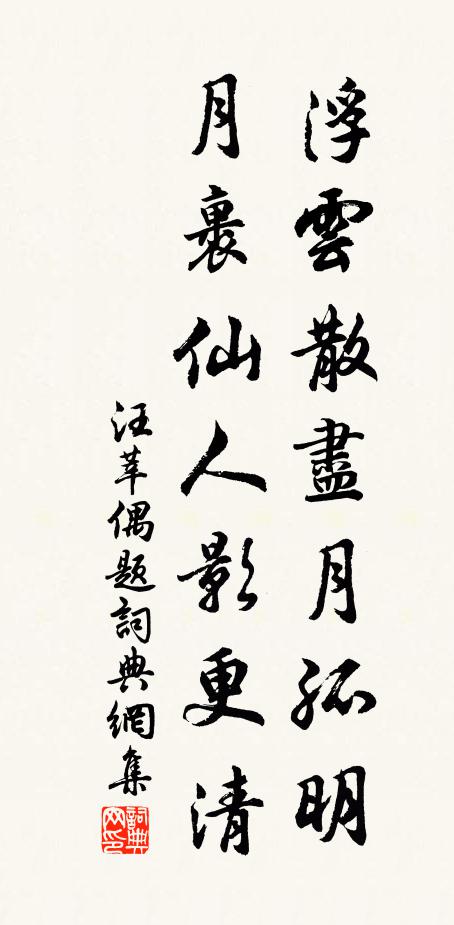 浮雲散盡月孤明
月裏仙人影更清
汪莘偶題詞典網集
詞典网印